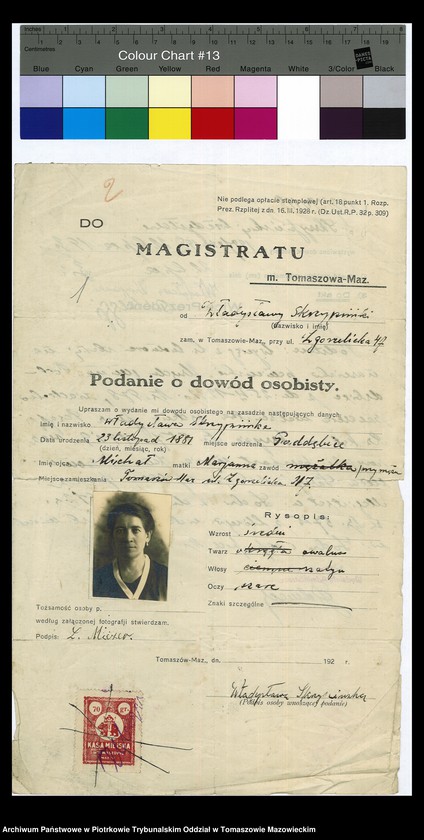 Inches
Centimetres
Colour Chart #13
Blue Cyan Green Yellow Red Magenta White 3/Color Black
2
Nie podlega opłacie stemplowej (art. 18 punkt 1. Rozp.
Prez. Rzplitej z dn. 16. III. 1928 r. (Dz. Ust. R. P. 32 p. 309)
DO
MAGISTRATU
m. Tomaszowa-Maz.
1
od Władysławy Skrzypińskiej
(nazwisko i imię)
zam. w Tomaszowie-Maz., przy ul. Zgorzelicka 47
Podanie o dowód osobisty.
Upraszam o wydanie mi dowodu osobistego na zasadzie następujących danych
Imię i nazwisko Władysława Skrzypińska
Data urodzenia 23 listopad 1881 miejsce urodzenia Poddębice
(dzień, miesiąc, rok)
Imię ojca Michał matki Marjanna zawód
Miejsce zamieszkania Tomaszów Maz. ul. Zgorzelicka
Rysopis:
Wzrost średni
Twarz owalna
Włosy
Oczy szare
Znaki szczególne
Tożsamość osoby p.
według załączonej fotografji stwierdzam.
Podpis:
Tomaszów-Maz., dn. 192 r.
Władysława Skrzypińska
(Podpis osoby wnoszącej podanie)
70 gr.
KASA MIEJSKA
Archiwum Państwowe w Piotrkowie Trybunalskim Oddział w Tomaszowie Mazowieckim